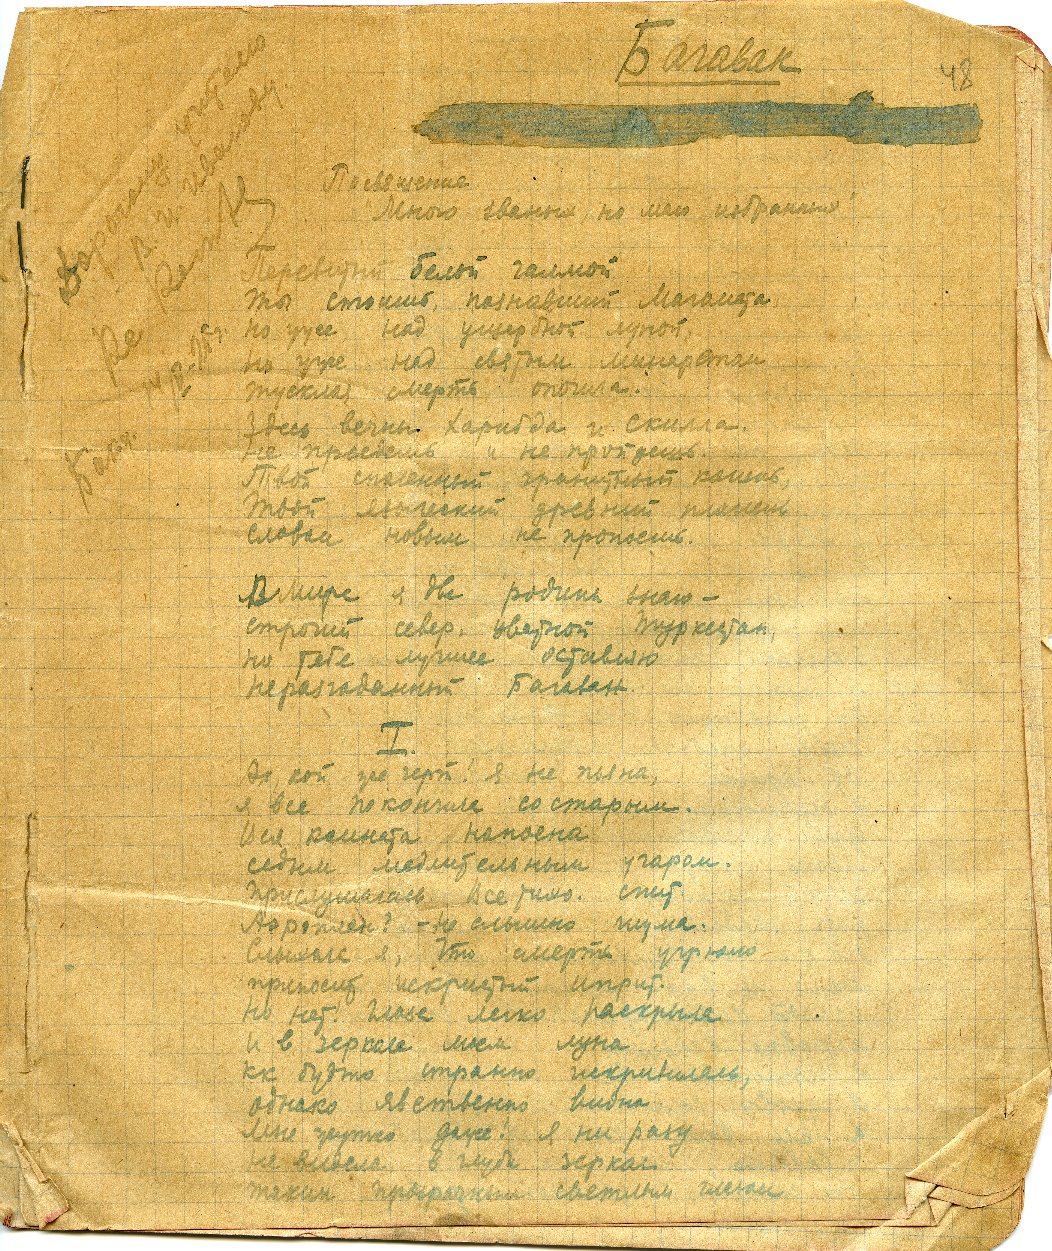 Багавак
48
Дорогому учителю
В. И. Иванову.
Баку.
Посвящение
"Много званых, но мало избранных"
Перевитый белой чалмой
ты стоишь, познавший Магомета
но уже над ущербной луной,
но уже над святым минаретом
тусклая смерть опочила.
Здесь вечны Харибда и Скилла.
Не проедешь и не пройдешь.
Твой спаленный гранитный камень,
Твой языческий древний пламень
словом новым не пропоешь.
В мире я две родины знаю –
строгий север, цветной Туркестан,
но тебе лучшее оставляю
неразгаданный Багаван.
I.
Да, кой уже черт! Я не пьяна,
я все покончила со старым.
Вся комната напоена
седым медлительным угаром.
Прислушалась. Все тихо. спит
Аэроплан? – Не слышно шума.
Слыхала я, что смерть угрюмо
приносит искристый иприт.
Но нет. Глаза легко раскрыла
и в зеркале моем луна
кк будто странно искривилась,
однако явственно видна
Мне жутко даже! я ни разу
не видела в глуби зеркал
таким прозрачным светлым глазом